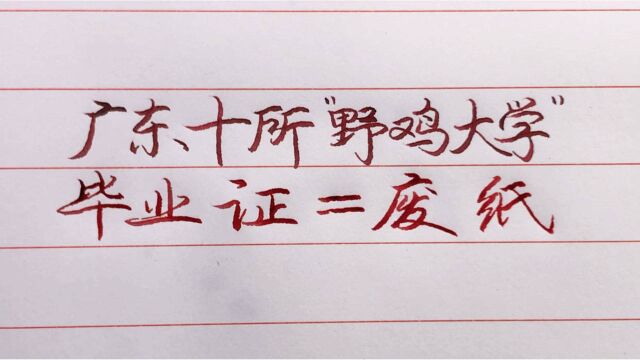 广东十所"野鸡大学"
毕业证=废纸